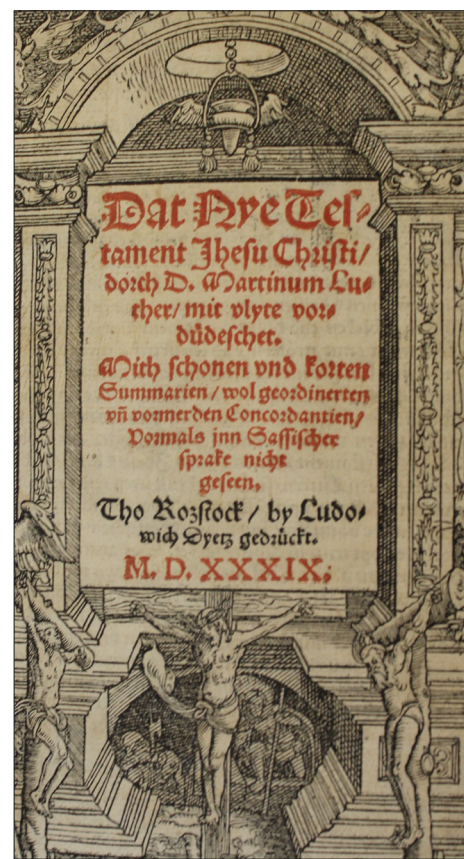 Dat Nye Tes-
tament Jhesu Christi/
dorch D. Martinum Lu-
ther/ mit vlyte vor-
düdeschet.
Mith schonen vnd korten
Summarien/ wol geordinerten
vñ vormerden Concordantien/
Vormals jnn Sassischer
sprake nicht
geseen.
Tho Rozstock/ by Ludo-
wich Dyetz gedrückt.
M. D. XXXIX.